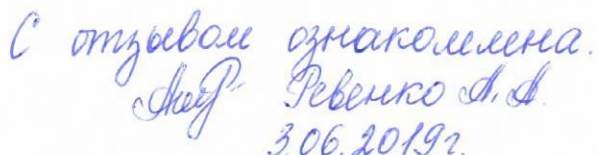 С отзывом ознакомлена.
Ревенко А. А.
3.06.2019г.